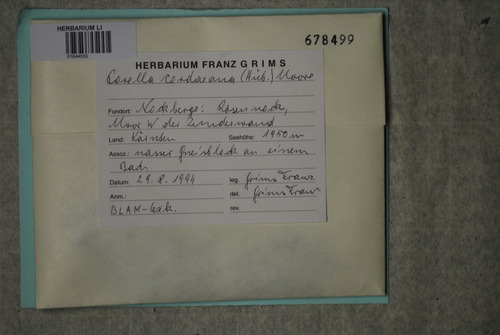 HERBARIUM LI
678499
HERBARIUM FRANZ GRIMS
(Hüb.) Moore
Fundort: Nockberge: Rosennock,
Moor W der Zunderwand
Land: Kärnten Seehöhe: 1960 m
Assoz.: nasser Gneisblock an einem
Bach
Datum: 29.8.1994 leg. Grims Franz
Anm.: det. Grims Franz
BLAM-Exk. rev.